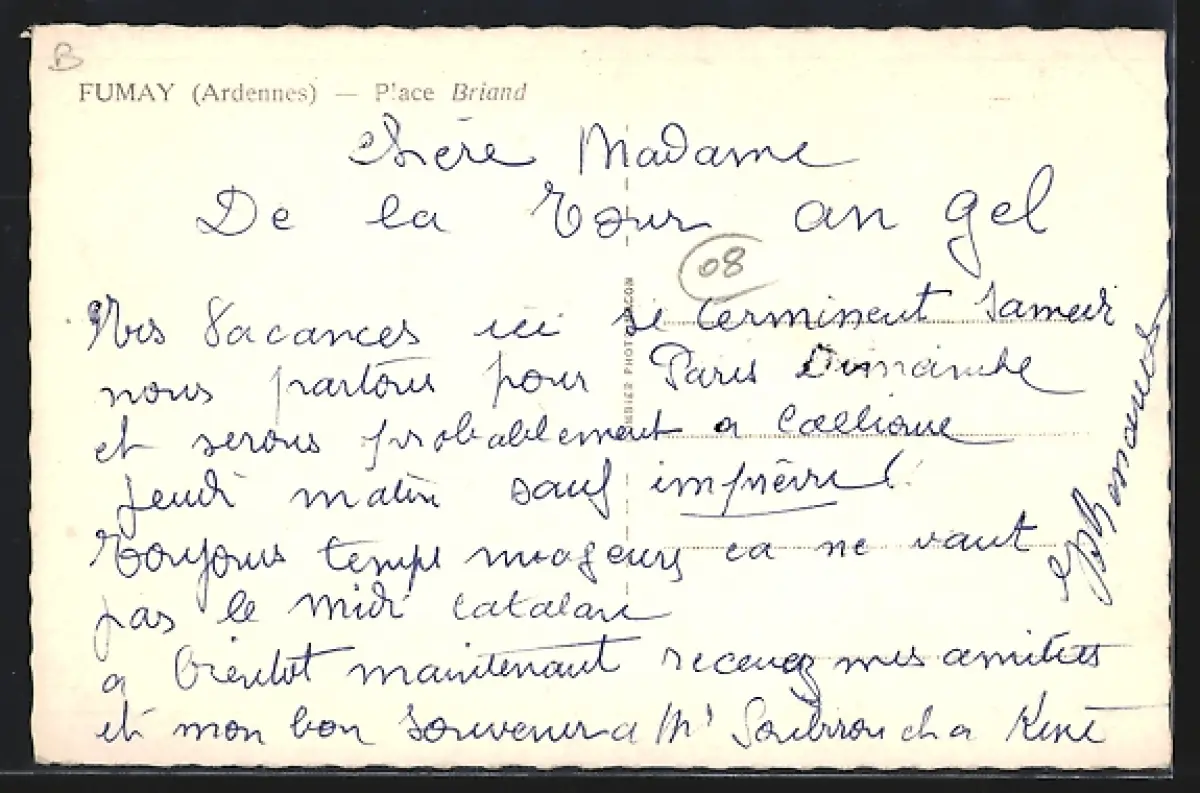 B
FUMAY (Ardennes) — Place Briand
Chère Madame
De la Tour an gel
08
Nos Vacances ici se terminent Samedi
nous partons pour Paris Dimanche
et serons probablement a Collioure
jeudi matin sauf imprévu !
Toujours temps nuageux ca ne vaut
pas le midi catalan
a bientot maintenant recevez mes amitiés
et mon bon souvenir a Mr et a René